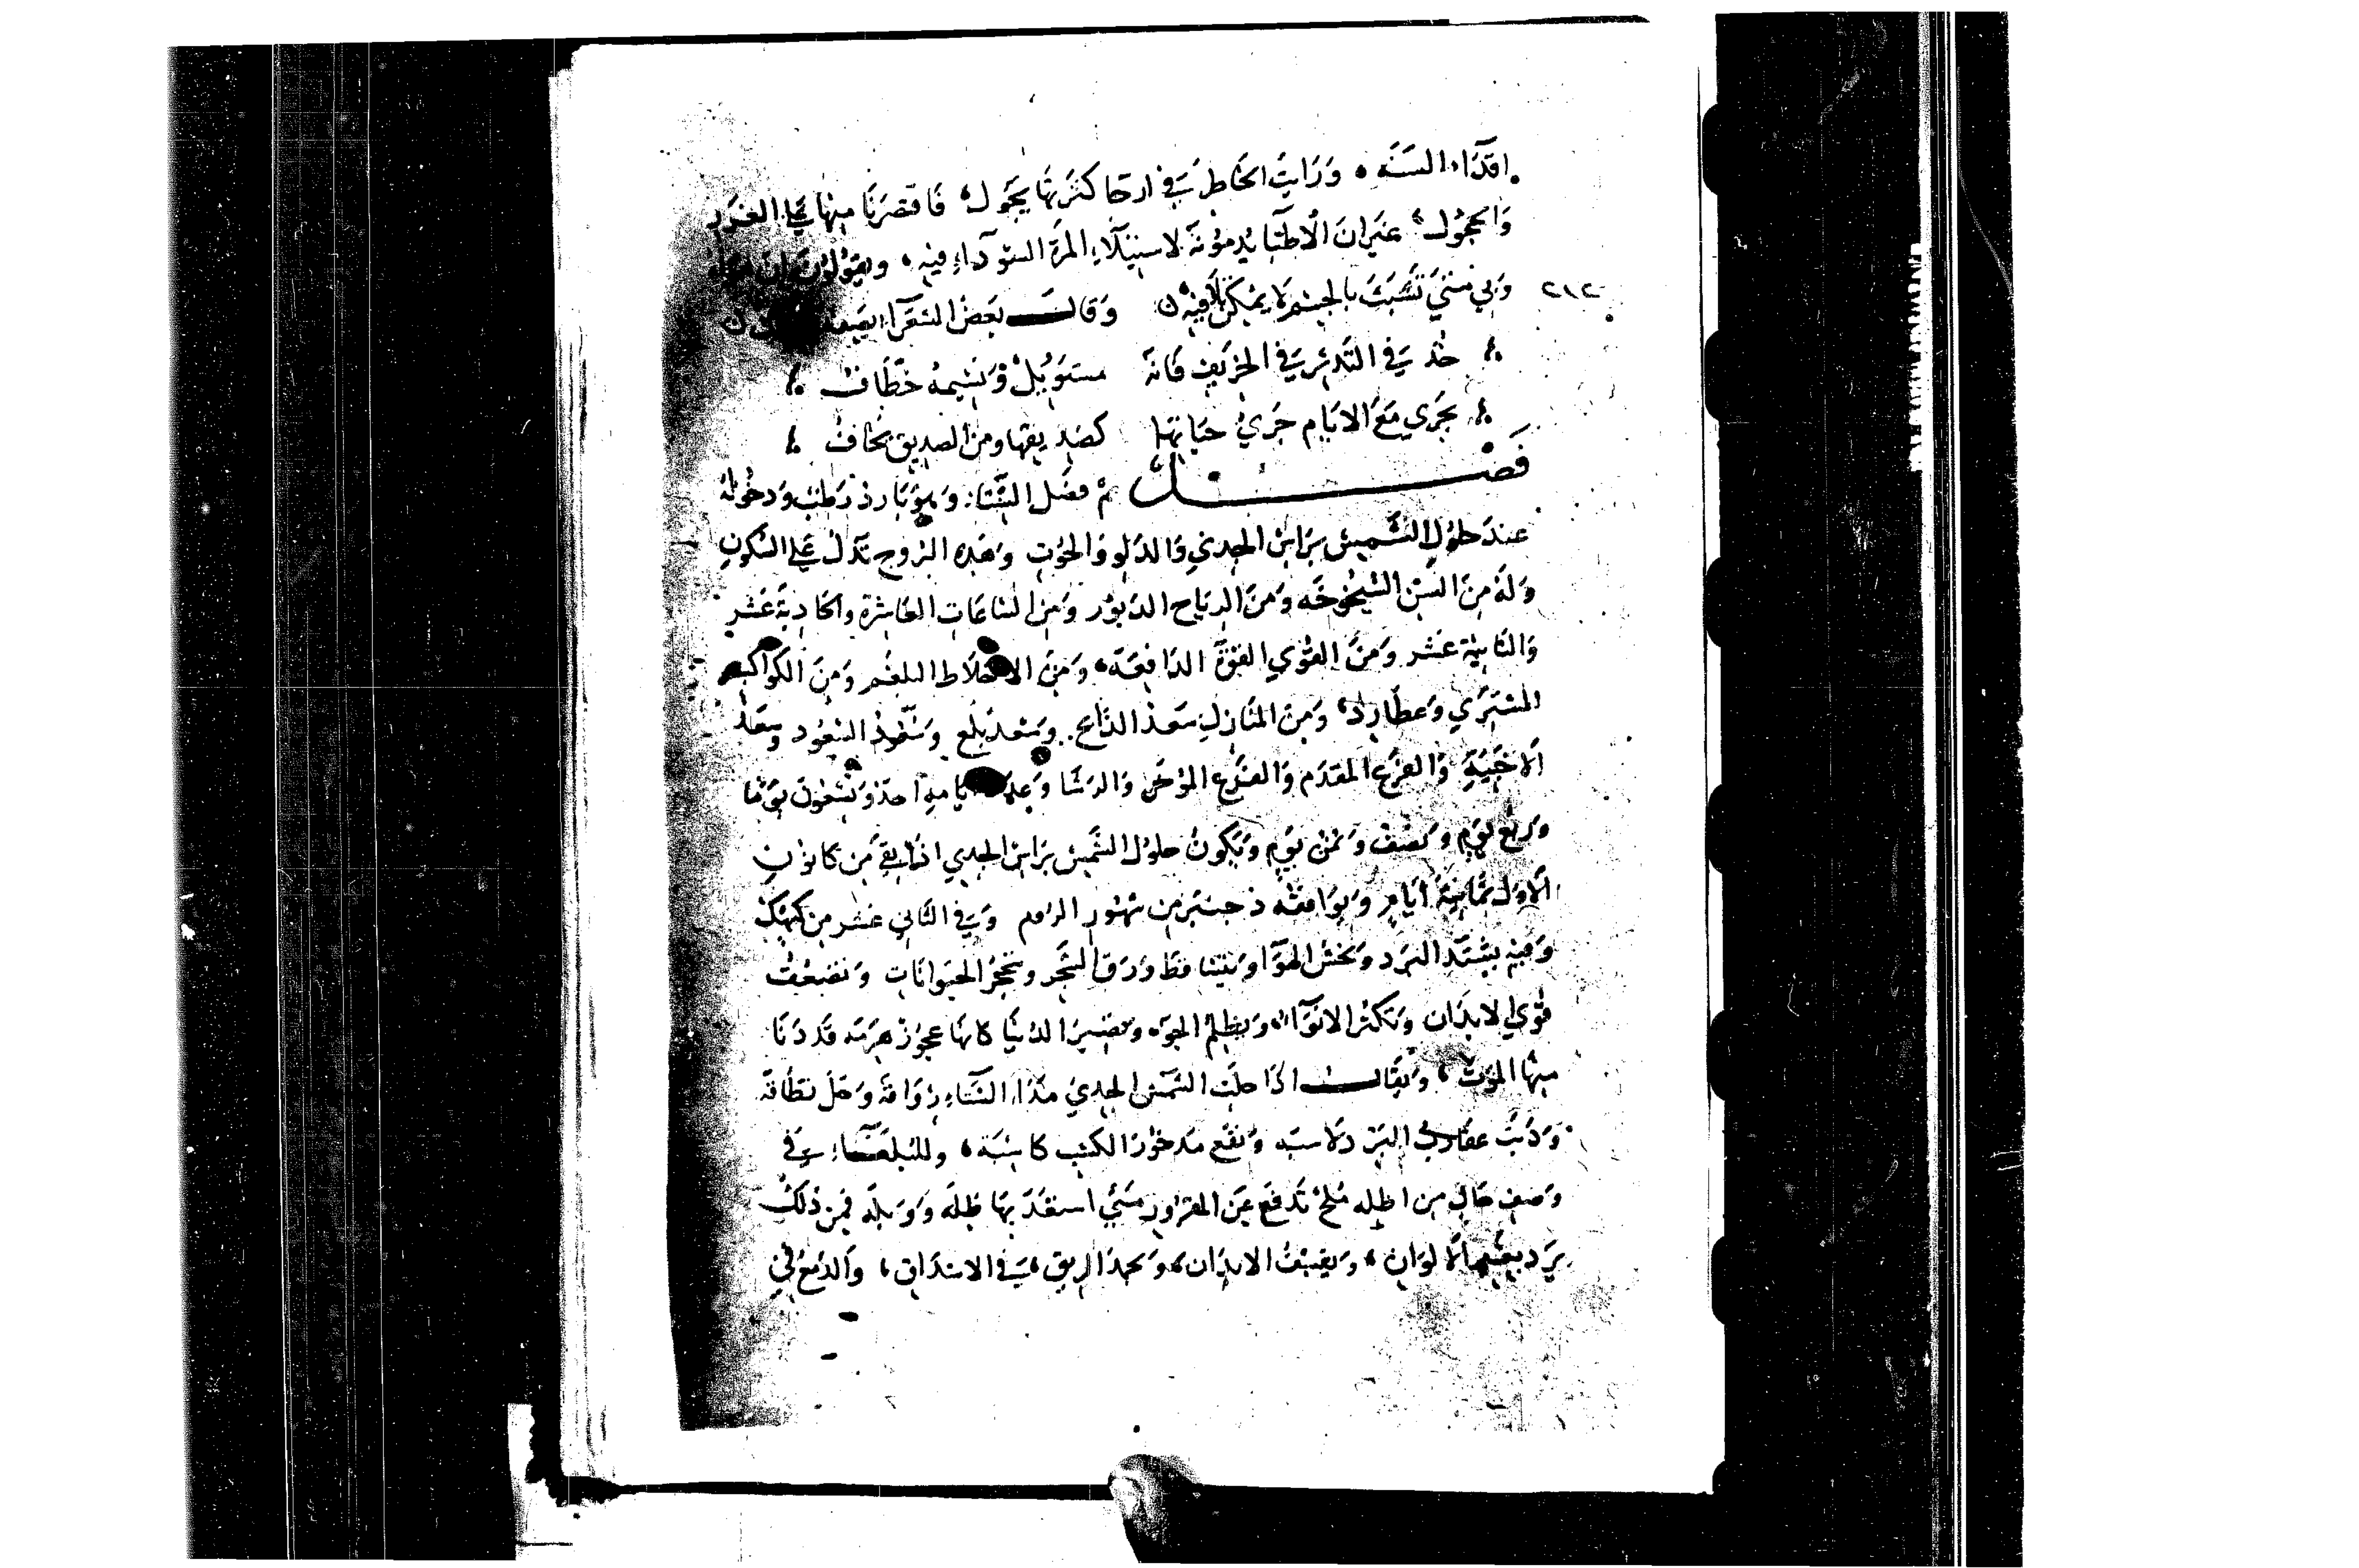 اقذاء السنه ورايت الخاطر في ارحا كثرتها يجول فاقتصرنا منها علي الغرر
والحجول غير ان الاطبا يذمونه لاستيلاء المرة السوداء فيه ويقولون ان
٢١٢
وبي متي تشبث بالجسم لا يمكن تلافيه وقال بعض الشعراء
خذ في التدثر في الخريف فانه مستوبل ونسيمه خطاف
يجري مع الايام جري حياتها كصديقها ومن الصديق يخاف
فصل ثم فصل الشتا وهو بارد رطب ودخوله
عند حلول الشمس براس الجدي والدلو والحوت وهذه البروج تدل علي السكون
وله من السن الشيخوخه ومن الرياح الدبور ومن الساعات العاشرة والحادية عشر
والثانية عشر ومن القوي القوة الدافعة ومن الاخلاط البلغم ومن الكواكب
المشتري وعطارد ومن المنازل سعد الذابح وسعد بلع وسعد السعود وسعد
الاخبية والفرغ المقدم والفرغ المؤخر والرشا وعدد ايامه احد وتسعون يوما
وربع يوم ونصف وثمن يوم ويكون حلول الشمس براس الجدي اذا بقي من كانون
الاول ثمانية ايام ويوافقه دجنبر من شهور الروم وفي الثاني عشر من كيهك
وفيه يشتد البرد ويخشن الهوا ويتساقط ورق الشجر وينحجر الحيوانات وتضعف
قوي الابدان وتكثر الانواء ويظلم الجو وتصير الدنيا كانها عجوز هرمه قد دنا
منها الموت ويقال اذا حلت الشمس الجدي مد الشتاء رواقه وحل نطاقه
ودبت عقارب البرد لاسبه ونفع مدخور الكسب كاسبه وللبلغاء في
وصف حال من اظله ملح تدفع عن المقرور متي استعد بها طله ووبله فمن ذلك
برد يغير الالوان وينشف الابدان ويجمد الريق في الاشداق والدمع في